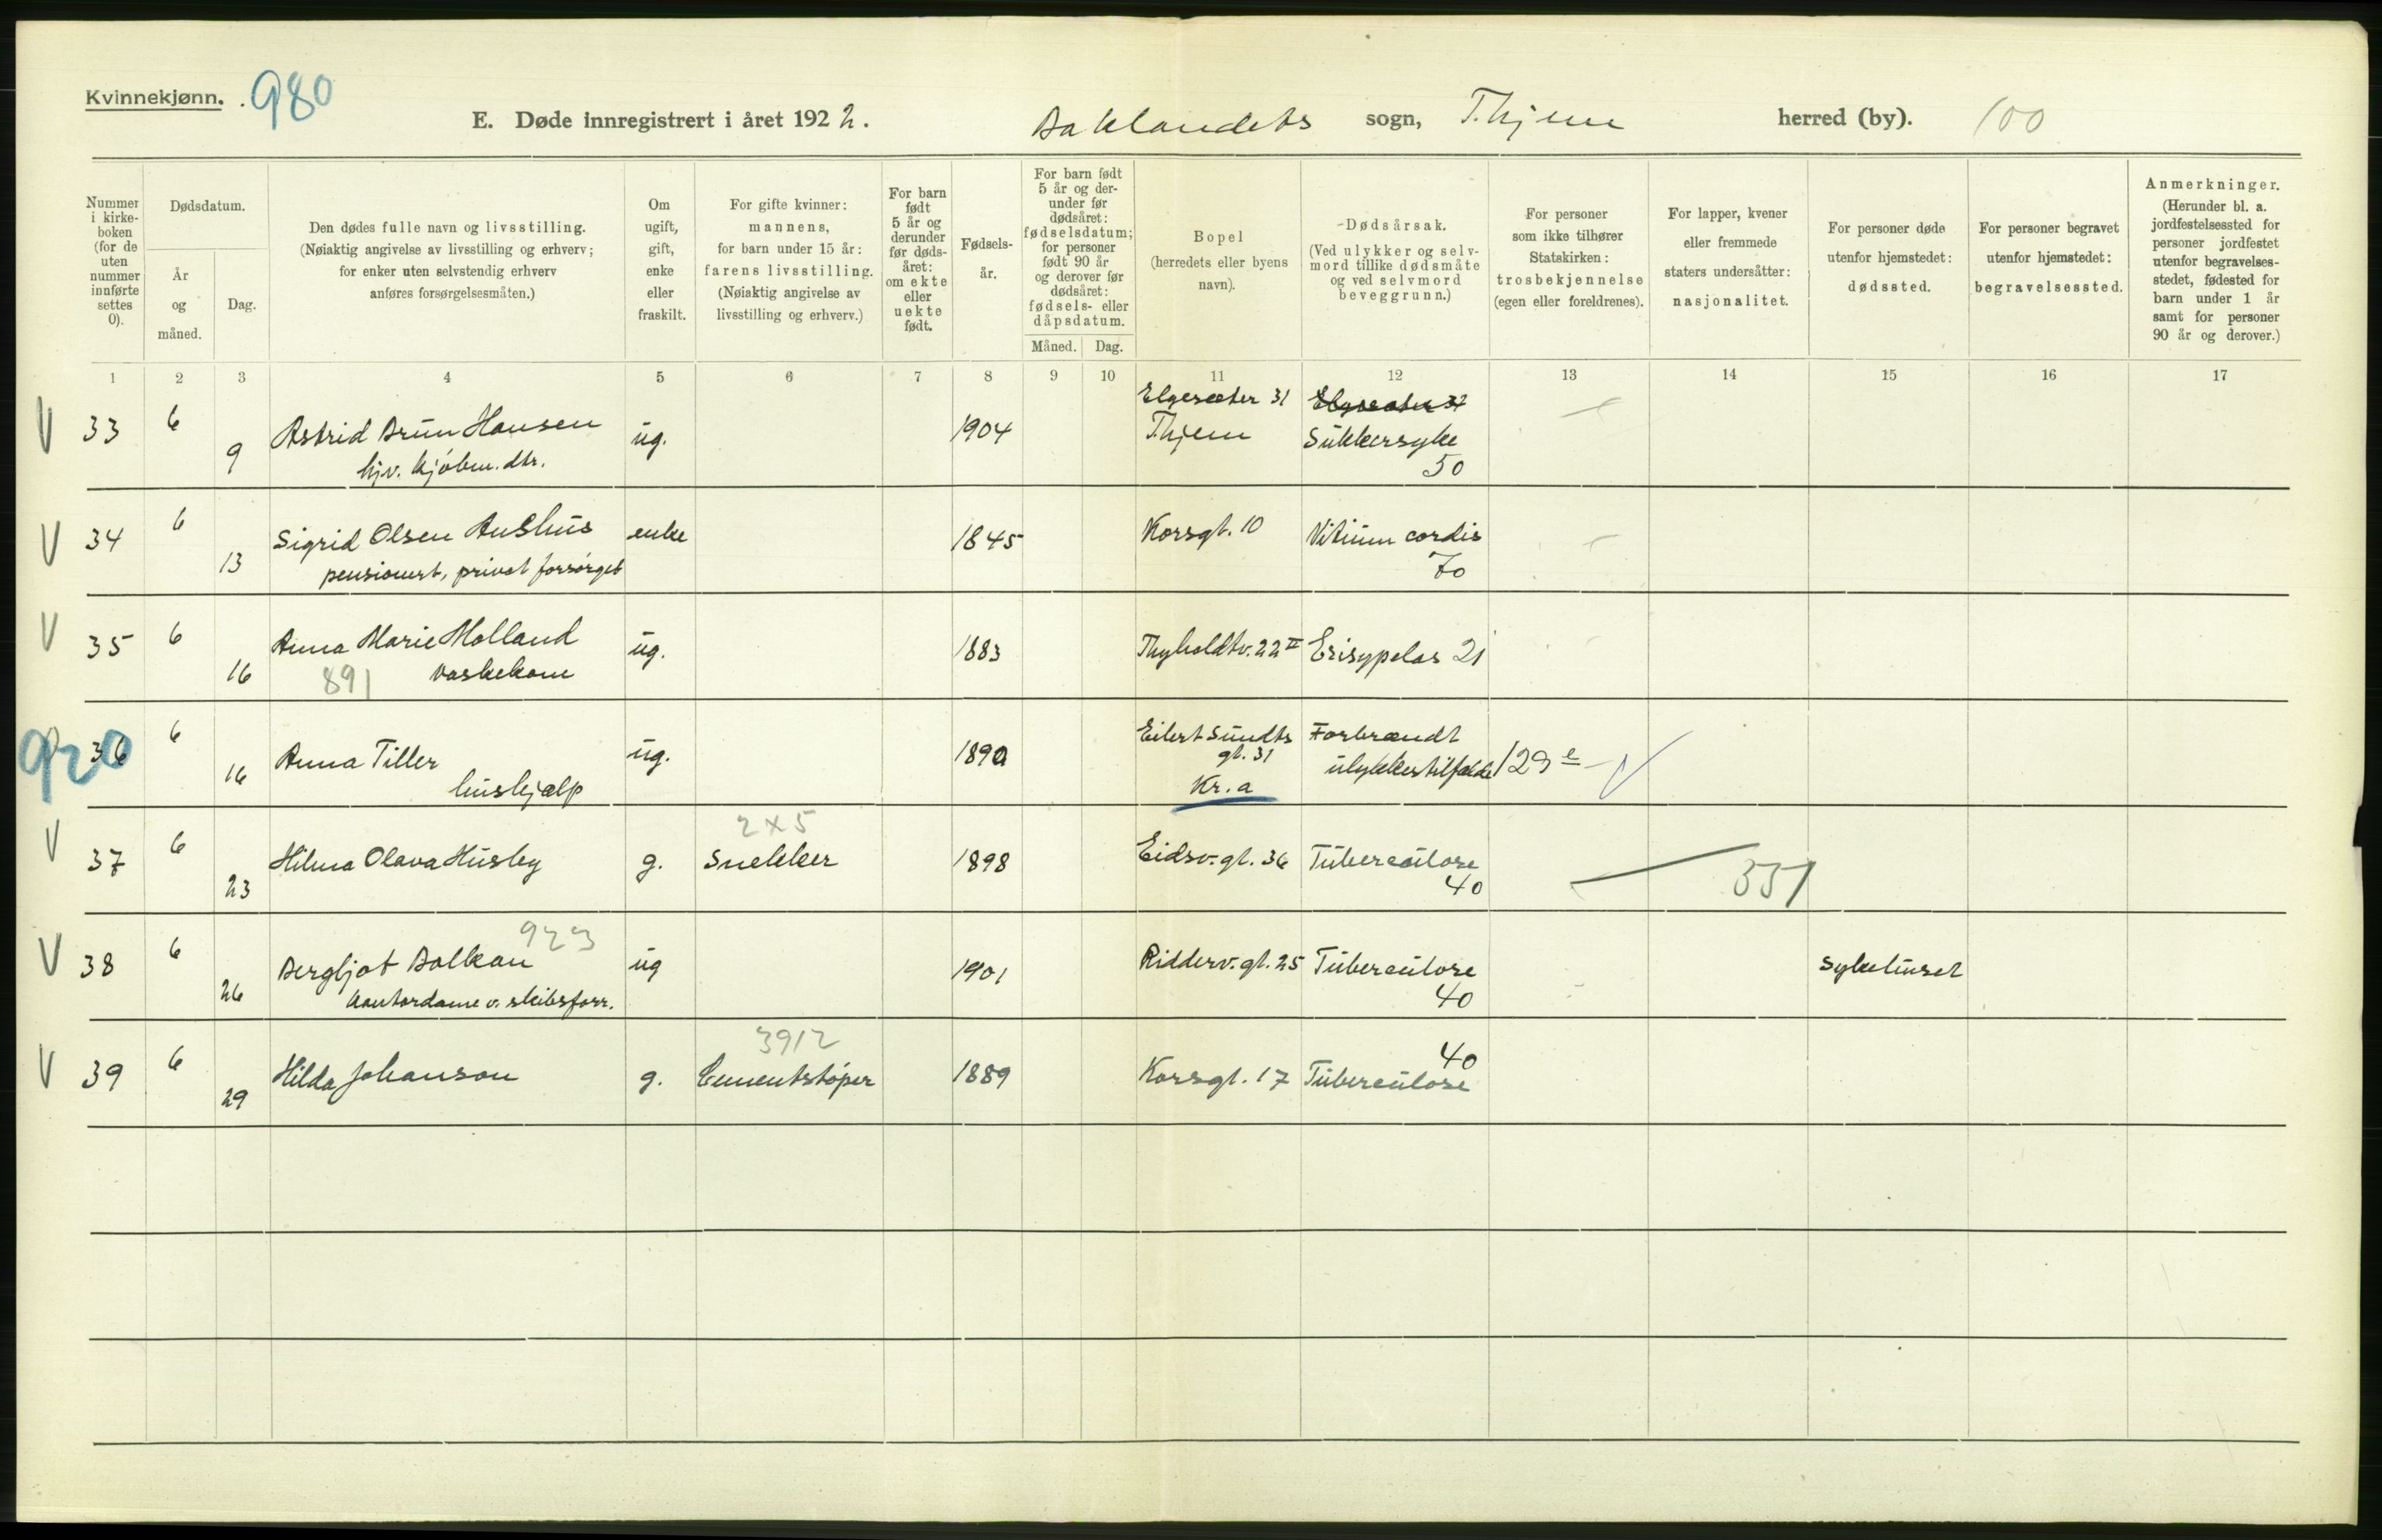 Kvinnekjønn. 980
E. Døde innregistrert i året 1922. Baklandets sogn, T.hjem herred (by). 100
Nummer i kirkeboken (for de uten nummer innførte settes 0).
Dødsdatum.
År og måned.
Dag.
Den dødes fulle navn og livsstilling.
(Nøiaktig angivelse av livsstilling og erhverv;
for enker uten selvstendig erhverv
anføres forsørgelsesmåten.)
Om ugift, gift, enke eller fraskilt.
For gifte kvinner:
mannens,
for barn under 15 år:
farens livsstilling.
(Nøiaktig angivelse av
livsstilling og erhverv.)
For barn født 5 år og derunder før dødsåret: om ekte eller uekte født.
Fødselsår.
For barn født 5 år og derunder før dødsåret: fødselsdatum; for personer født 90 år og derover før dødsåret: fødsels- eller dåpsdatum.
Måned. Dag.
Bopel
(herredets eller byens
navn).
Dødsårsak.
(Ved ulykker og selvmord tillike dødsmåte og ved selvmord beveggrunn.)
For personer
som ikke tilhører
Statskirken:
trosbekjennelse
(egen eller foreldrenes).
For lapper, kvener
eller fremmede
staters undersåtter:
nasjonalitet.
For personer døde
utenfor hjemstedet:
dødssted.
For personer begravet
utenfor hjemstedet:
begravelsessted.
Anmerkninger.
(Herunder bl. a.
jordfestelsessted for
personer jordfestet
utenfor begravelses-
stedet, fødested for
barn under 1 år
samt for personer
90 år og derover.)
1 2 3 4 5 6 7 8 9 10 11 12 13 14 15 16 17
V 33 6 9 Astrid Brun Hansen ug. 1904 Elgeseter 31 T.hjem Elgeseter 31 Sukkersyke 50
hjv. kjøbm. dtr.
V 34 6 13 Sigrid Olsen Aushus enke 1845 Korsgt. 10 Vitium cordis 70
pensionert, privat forsørget
V 35 6 16 Anna Marie Holland ug. 1883 Thyholdtv. 22 II Erisypelas 21
891 vaskekone
920 36 6 16 Anna Tiller ug. 1890 Eilert Sundts gt. 31 Kr.a Forbrændt ulykkestilfælde 129 e
hushjælp
V 37 6 23 Hilma Olava Husby g. 2x5 Snekker 1898 Eidsv. gt. 36 Tuberculose 40 351
V 38 6 26 Bergljot Balkan 923 ug 1901 Ridderv. gt. 25 Tuberculose 40 Sykehuset
kontordame v. skibsforr.
V 39 6 29 Hilda Johanson g. 3912 Cementstøper 1889 Korsgt. 17 40 Tuberculose